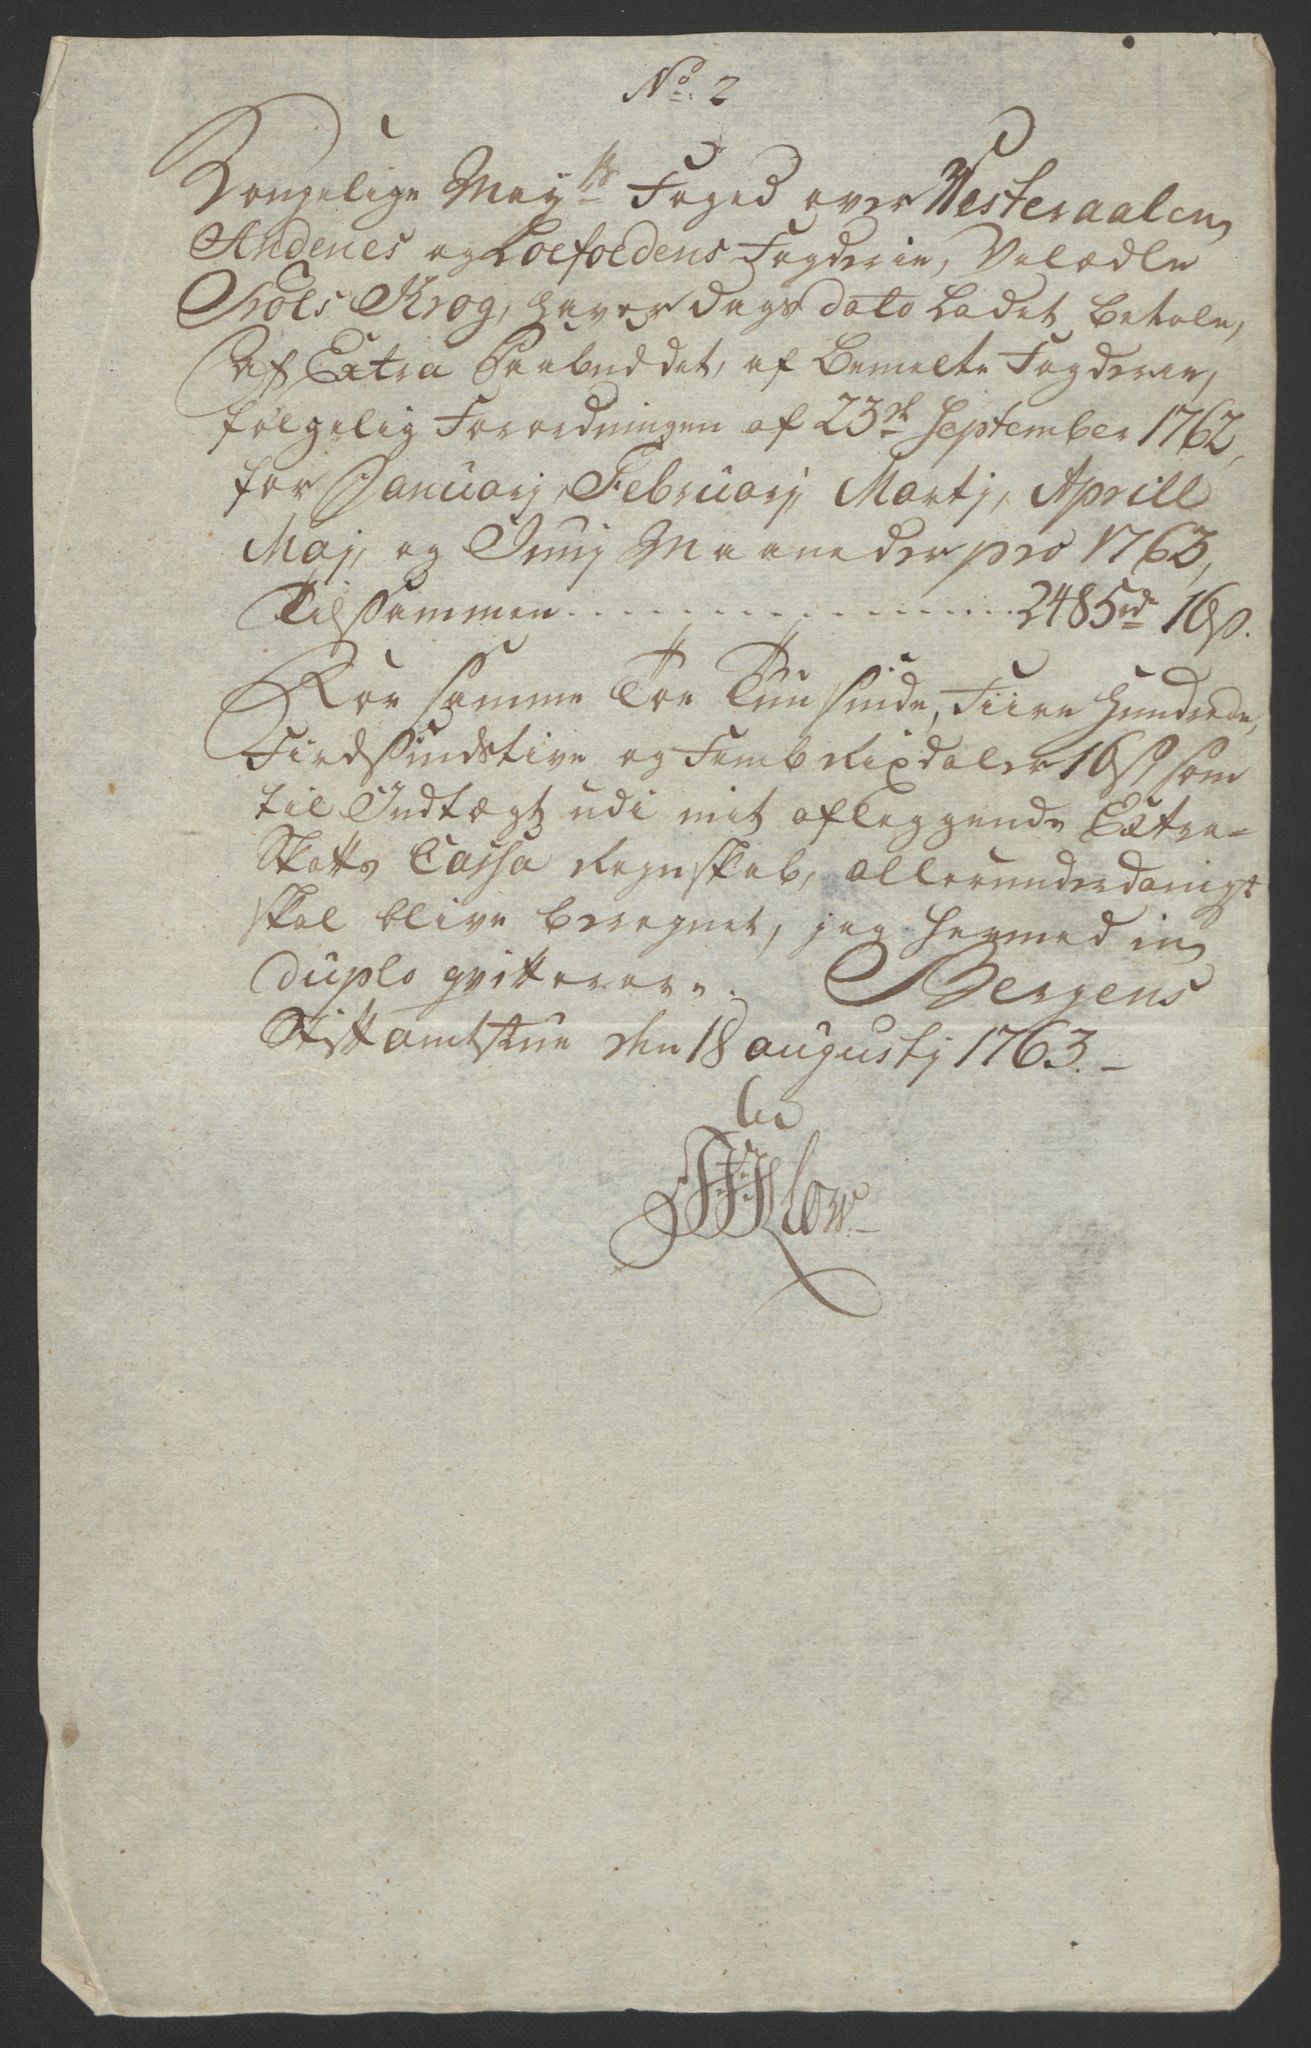 No. 2
Kongelige Mayts Foged over Westeraalen
Andenes og Loefoedens Fogderie, Velædle
Troels Krog, haver dags dato ladet betale,
Af Extra Paabuddet, af bemelte Fogderie,
følgelig Forordningen af 23de September 1762,
for Januarj, Februarj, Martj, Aprill
Maj, og Junj Maaneder pro 1763,
Tilsammen . . . . . . . . . . 2485 rd 16 ß.
For samme Toe Tuusinde, Fiire Hundrede,
Firdsindstive og Femb Rixdaler 16 ß som
til Indtægt udi mit aflæggende Extra-
Skatts Cassa Regnskab, allerunderdanigst
skal blive beregnet, jeg hermed in
duplo qvitterer. Bergens
Stiftamtstue den 18 augustj 1763.